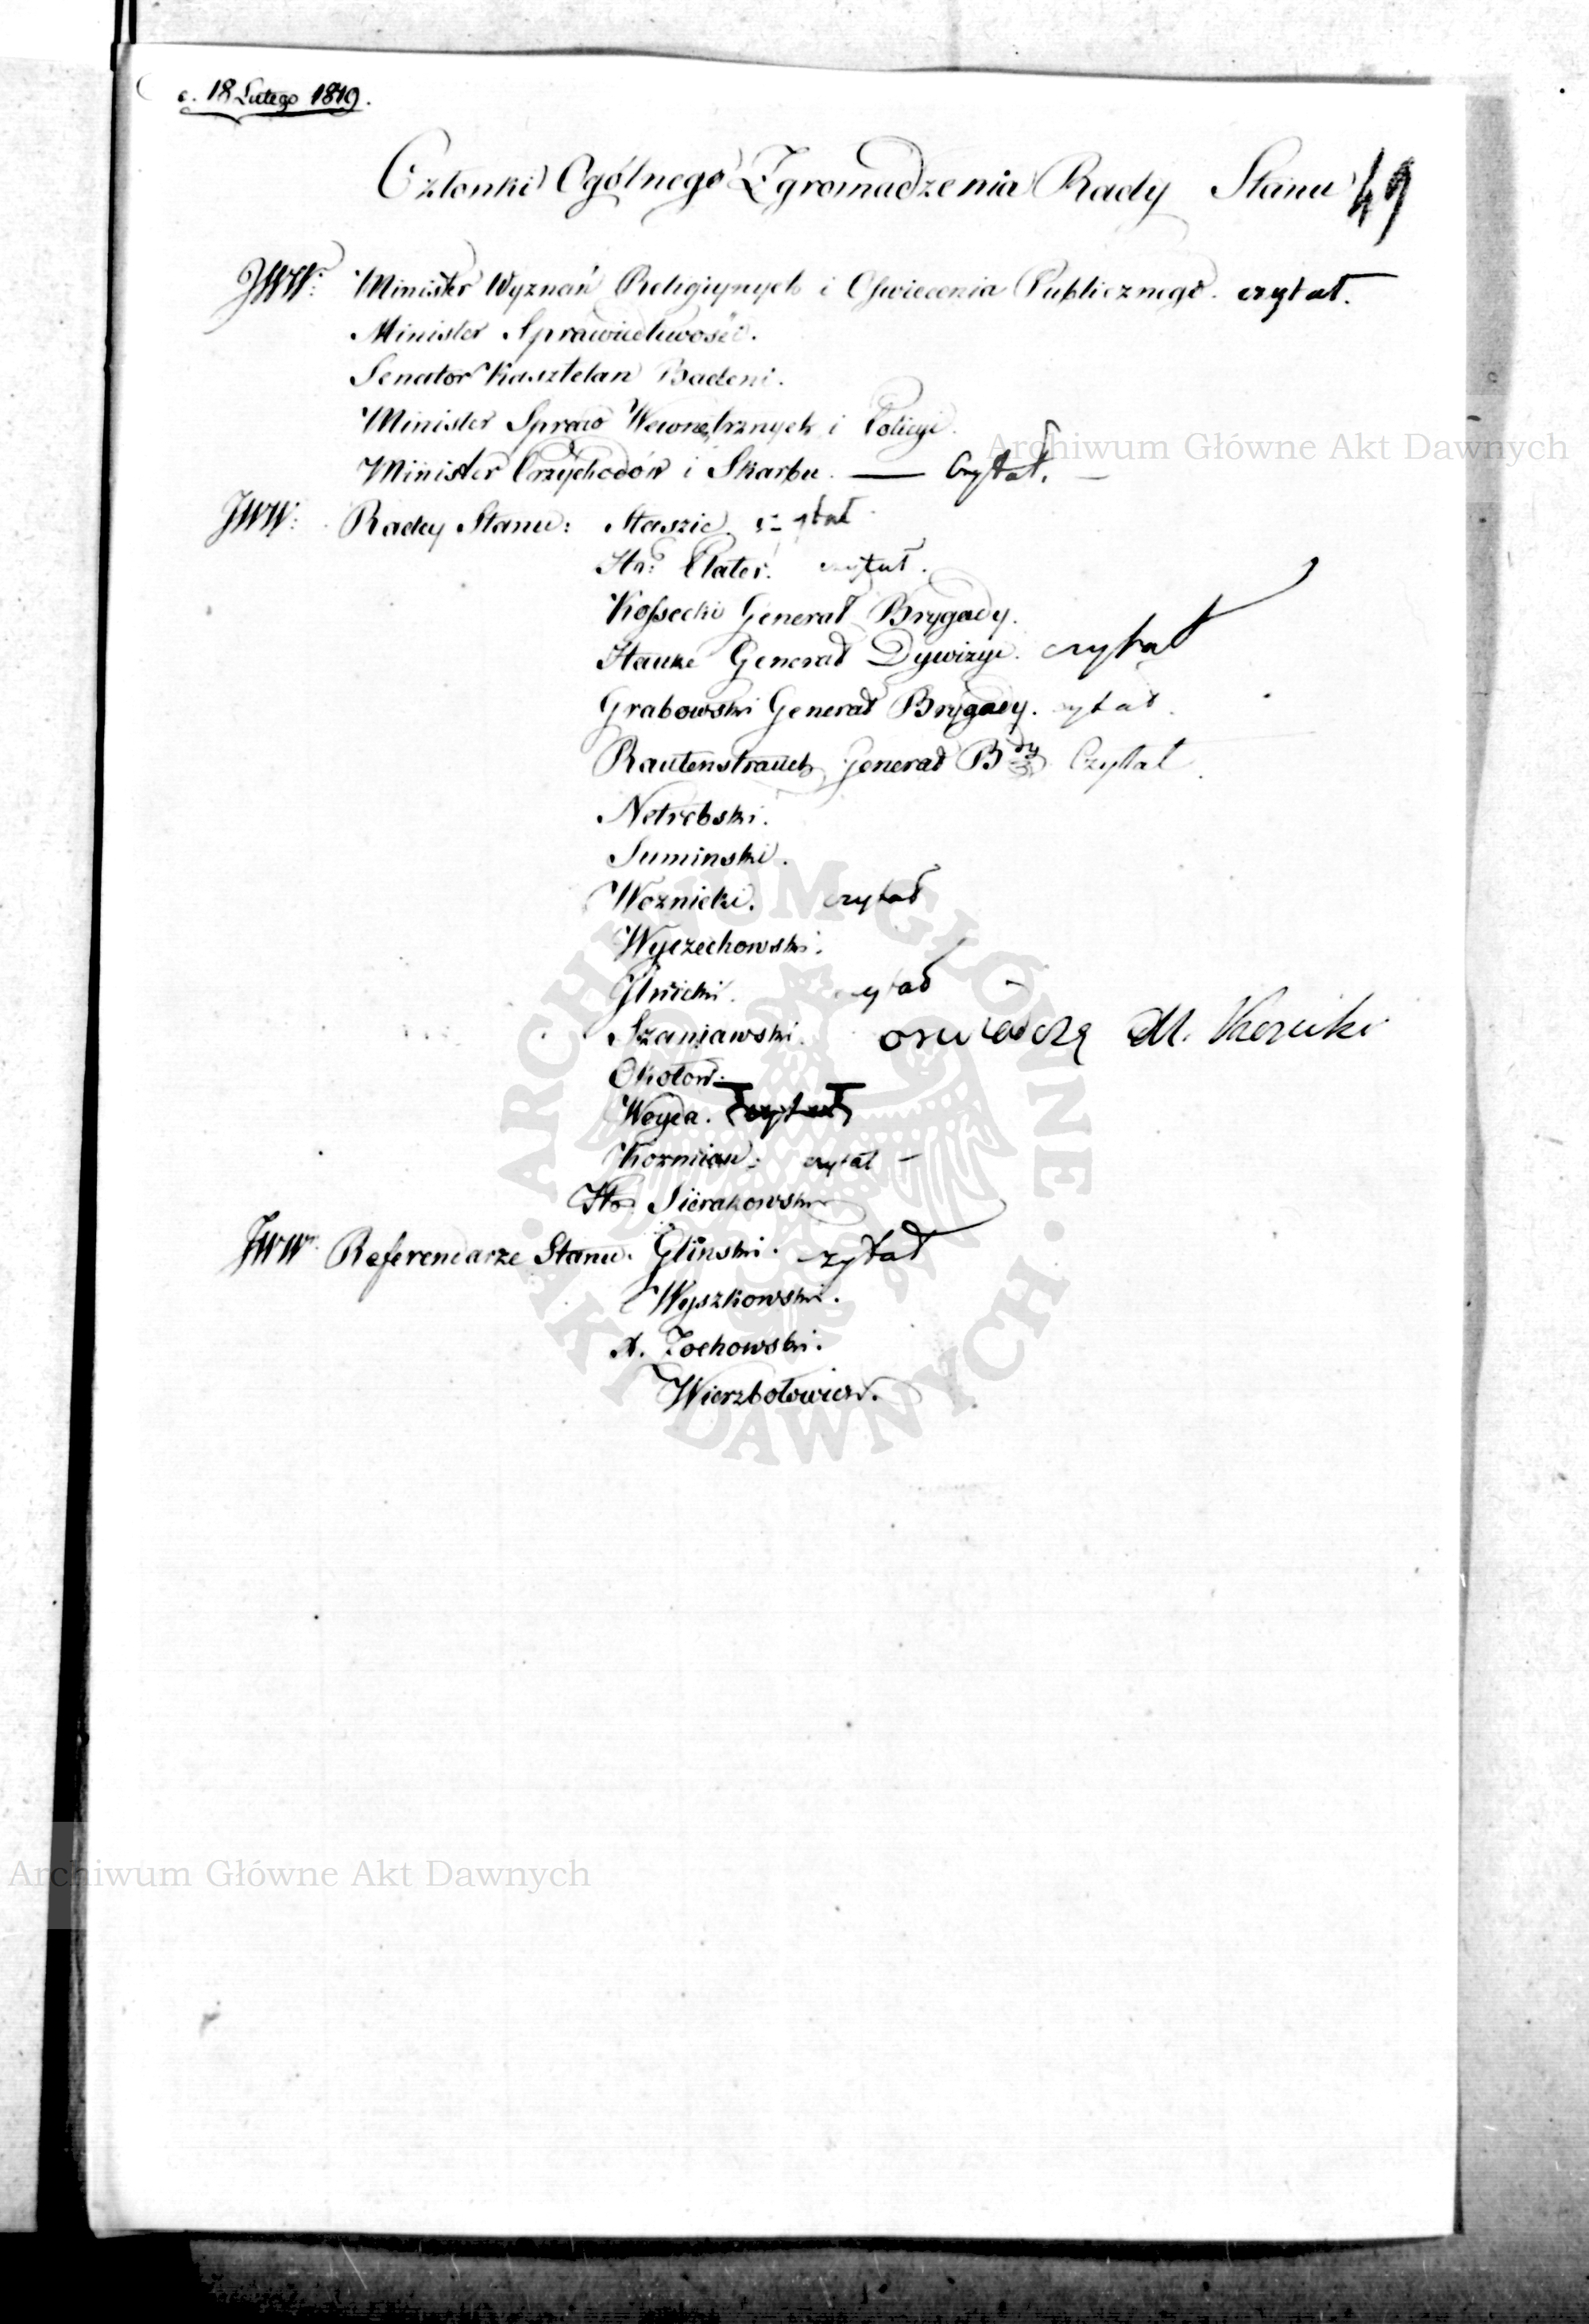 c. 18 Lutego 1819.
Członki Ogólnego Zgromadzenia Rady Stanu 49
JWW: Minister Wyznań Religiynych i Oświecenia Publicznego. czytał.
Minister Sprawiedliwości.
Senator Kasztelan Badeni.
Minister Spraw Wewnętrznych i Policyi.
Minister Przychodów i Skarbu. — Czytał. —
JWW: Radcy Stanu: Staszic czytał
Hr: Plater. czytał.
Kossecki Generał Brygady.
Hauke Generał Dywizyi. czytał
Grabowski Generał Brygady. czytał.
Rautenstrauch Generał Bdy Czytał
Netrebski.
Suminski.
Woznicki. czytał
Wyczechowski.
Glnicki. czytał
Szaniawski. M.
Okołow.
Woyda. czytał
Kozmian. czytał —
Hr. Sierakowski
JWW Referendarze Stanu. Glinski. czytał
Wyszkowski.
X. Zochowski.
Wierzbołowicz.
Archiwum Główne Akt Dawnych
ARCHIWUM GŁÓWNE · AKT DAWNYCH ·
Archiwum Główne Akt Dawnych